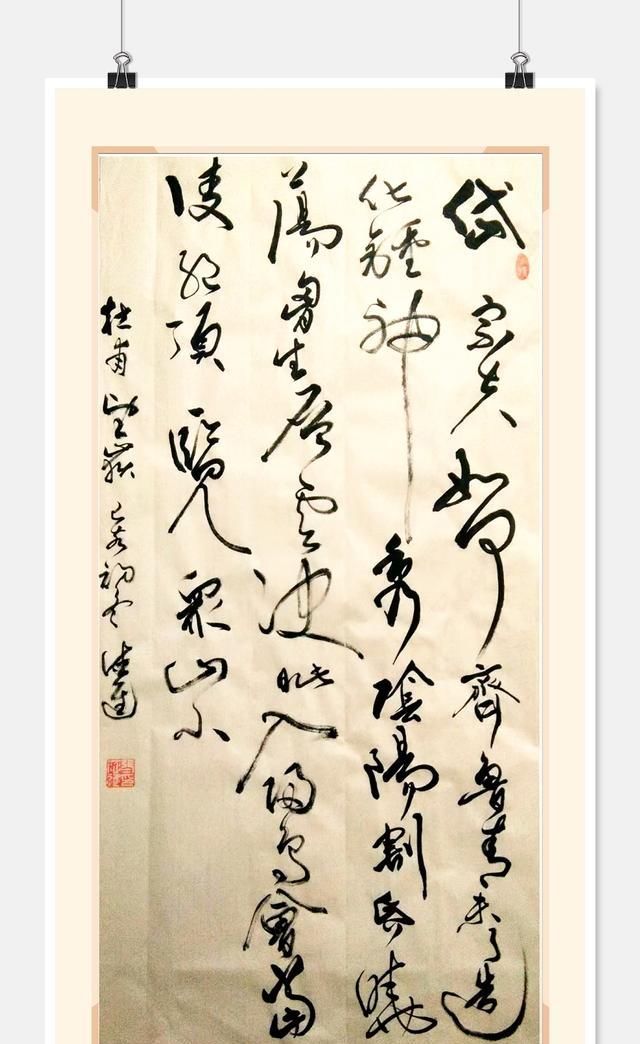 岱宗夫如何齊魯青未了造
化鍾神秀陰陽割昏曉
蕩胸生層雲決眥入歸鳥會當
凌絕頂覽眾山小
杜甫望嶽己亥初冬